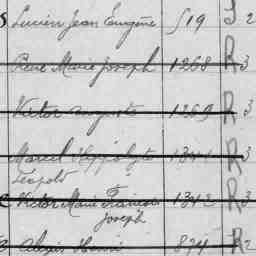 Lucien Jean Eugène 519 2
René Marie Joseph 1268 R 3
Victor Auguste 1269 R 3
Marcel Hippolyte 1341 R 3
Léopold
Victor Marie François 1342 R 3
Joseph
Alexis Henri 874 R 2